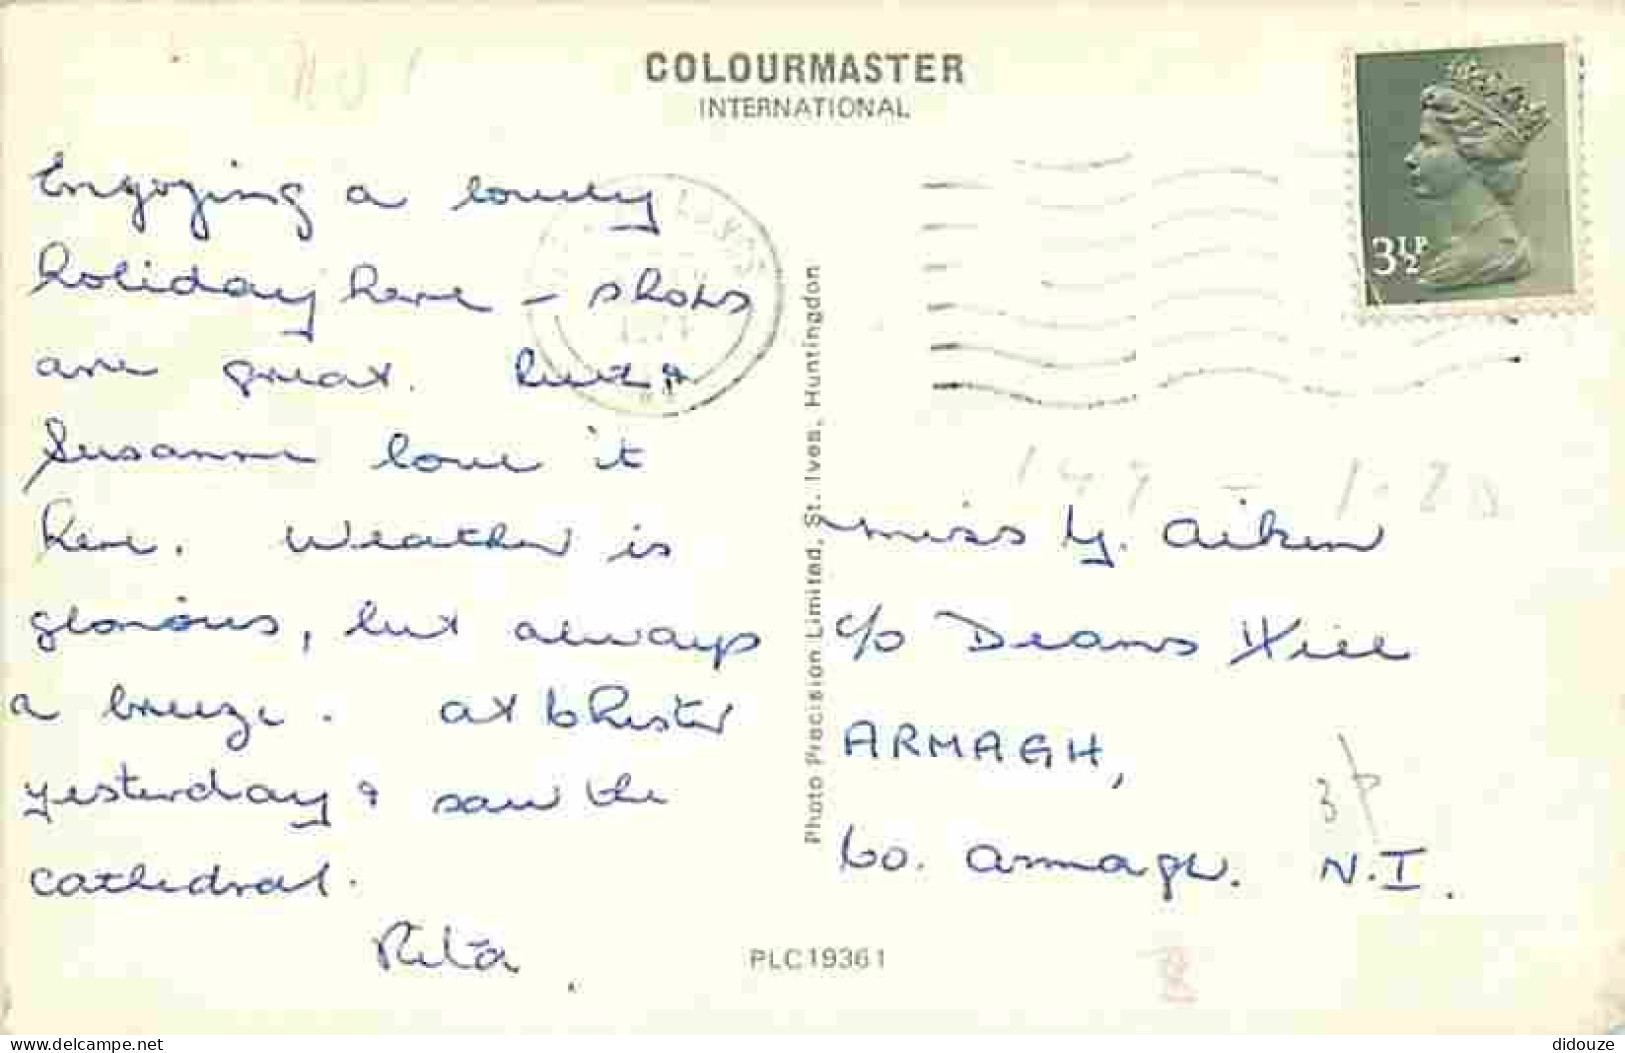 COLOURMASTER
INTERNATIONAL
3½P
Enjoying a lovely
holiday here – shops
are great. Ruth &
Susanne love it
here. Weather is
glorious, but always
a breeze. At Chester
yesterday & saw the
cathedral.
Rita
Photo Precision Limited, St. Ives, Huntingdon
Miss Y. Aiken
c/o Deans Hill
ARMAGH,
Co. Armagh. N.I.
3P
PLC19361
Delcampe.net
didouze